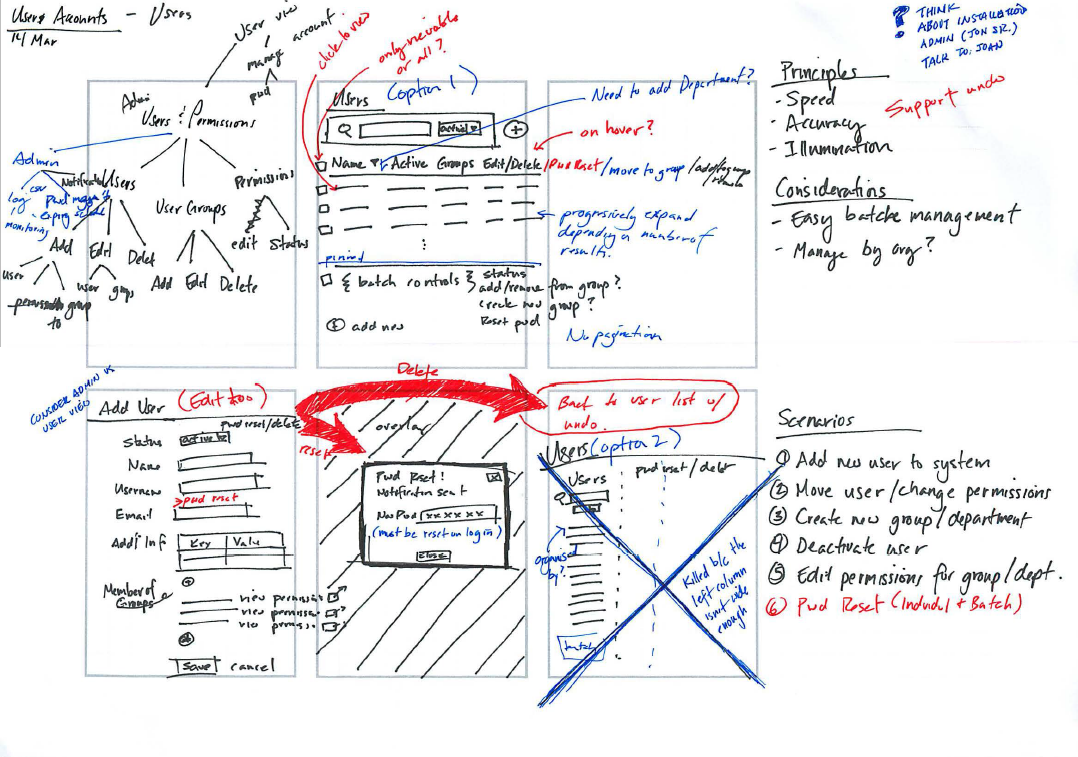 Users Accounts - Users
14 Mar
User view
manage account
pwd
click to view
only viewable
or all?
THINK
ABOUT INSTALLATION
ADMIN (JON SR.)
TALK TO: JOAN
Admin
Users & Permissions
Admin
csv
log
monitoring
Users
Permissions
User Groups
edit
status
Add
Edit
Delet
user
group
to
user
Add Edit Delete
Users (option 1)
Need to add Department?
on hover?
Name Active Groups Edit/Delete /Pwd Reset /move to group /add/to group
/remote
progressively expand
depending on number of
results.
pinned
{ batch controls } status
add/remove from group?
create new group?
Reset pwd
add new
No pagination
Principles
- Speed
- Accuracy
- Illumination
Support undo
Considerations
- Easy batche management
- Manage by org?
CONSIDER ADMIN VS
USER VIEW
Add User (Edit too)
pwd reset/delete
Status
Name
Username
> pwd reset
Email
Add'l Inf
Key Value
Member of
Groups
view permissio
view permissio
vie permissio
Save cancel
Delete
reset
overlay
Pwd Reset!
Notification sent
New Pwd xx xx xx
(must be reset on log in)
close
Back to user list w/
undo.
Users (option 2)
Users
pwd reset / delet
organised
by?
batch
Killed b/c the
left column
isn't wide
enough
Scenarios
① Add new user to system
② Move user/change permissions
③ Create new group/department
④ Deactivate user
⑤ Edit permissions for group/dept.
⑥ Pwd Reset (Individul + Batch)